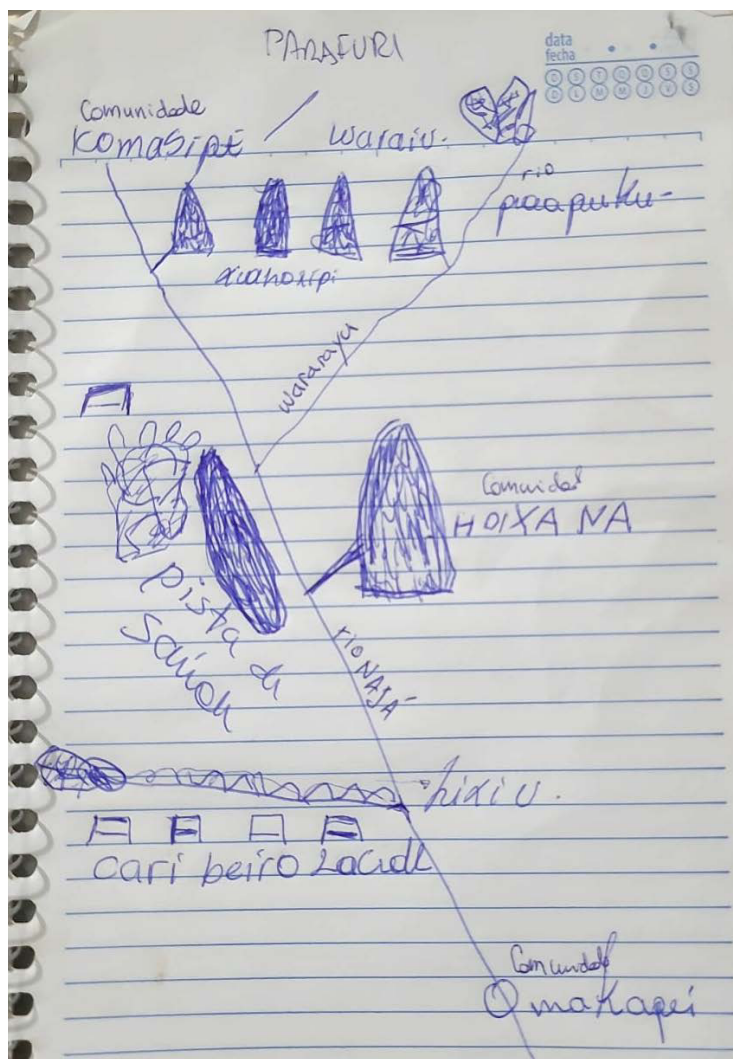 PARAFURI
data
fecha
D S T Q Q S S
D L M M J V S
Comunidade
KOMASIPE / Waraiu.
rio
paapuku-
xianoxipi
Wararayu
Comunidad
HOIXA NA
pista de
rio NAJÁ
hixiu.
Cari beiro Lacidl
Comunidade
Omakapei